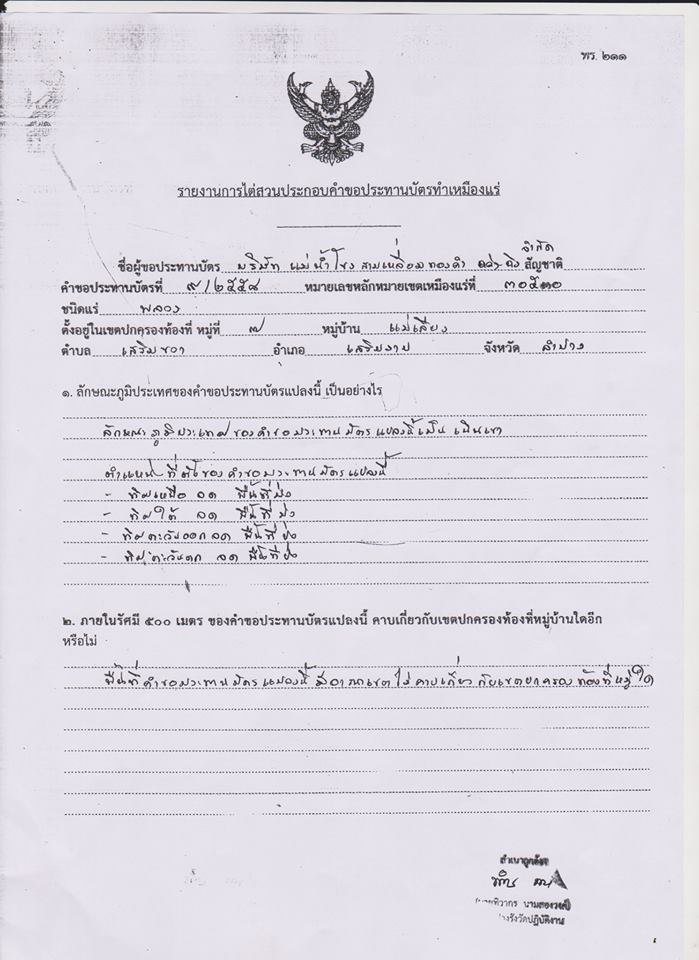 พร. ๒๑๑
รายงานการไต่สวนประกอบคำขอประทานบัตรทำเหมืองแร่
จำกัด
ชื่อผู้ขอประทานบัตร บริษัท แม่น้ำโขง สามเหลี่ยมทองคำ สัญชาติ
คำขอประทานบัตรที่ ๙/๒๕๕๘ หมายเลขหลักหมายเขตเหมืองแร่ที่ ๓๐๕๑๐
ชนิดแร่ พลวง
ตั้งอยู่ในเขตปกครองท้องที่ หมู่ที่ ๗ หมู่บ้าน แม่เลียง
ตำบล เสริมขวา อำเภอ เสริมงาม จังหวัด ลำปาง
๑. ลักษณะภูมิประเทศของคำขอประทานบัตรแปลงนี้ เป็นอย่างไร
ลักษณะภูมิประเทศของคำขอประทานบัตรแปลงนี้เป็น เนินเขา
ตำแหน่งที่ตั้งของคำขอประทานบัตรแปลงนี้
- ทิศเหนือ จด พื้นที่ป่า
- ทิศใต้ จด พื้นที่ป่า
- ทิศตะวันออก จด พื้นที่ป่า
- ทิศตะวันตก จด พื้นที่ป่า
๒. ภายในรัศมี ๕๐๐ เมตร ของคำขอประทานบัตรแปลงนี้ คาบเกี่ยวกับเขตปกครองท้องที่หมู่บ้านใดอีก
หรือไม่
พื้นที่คำขอประทานบัตรแปลงนี้ มีอาณาเขตไม่คาบเกี่ยว กับเขตปกครอง ท้องที่หมู่ใด
สำเนาถูกต้อง
ทิวากร นามสองวงศ์
ช่างรังวัดปฏิบัติงาน